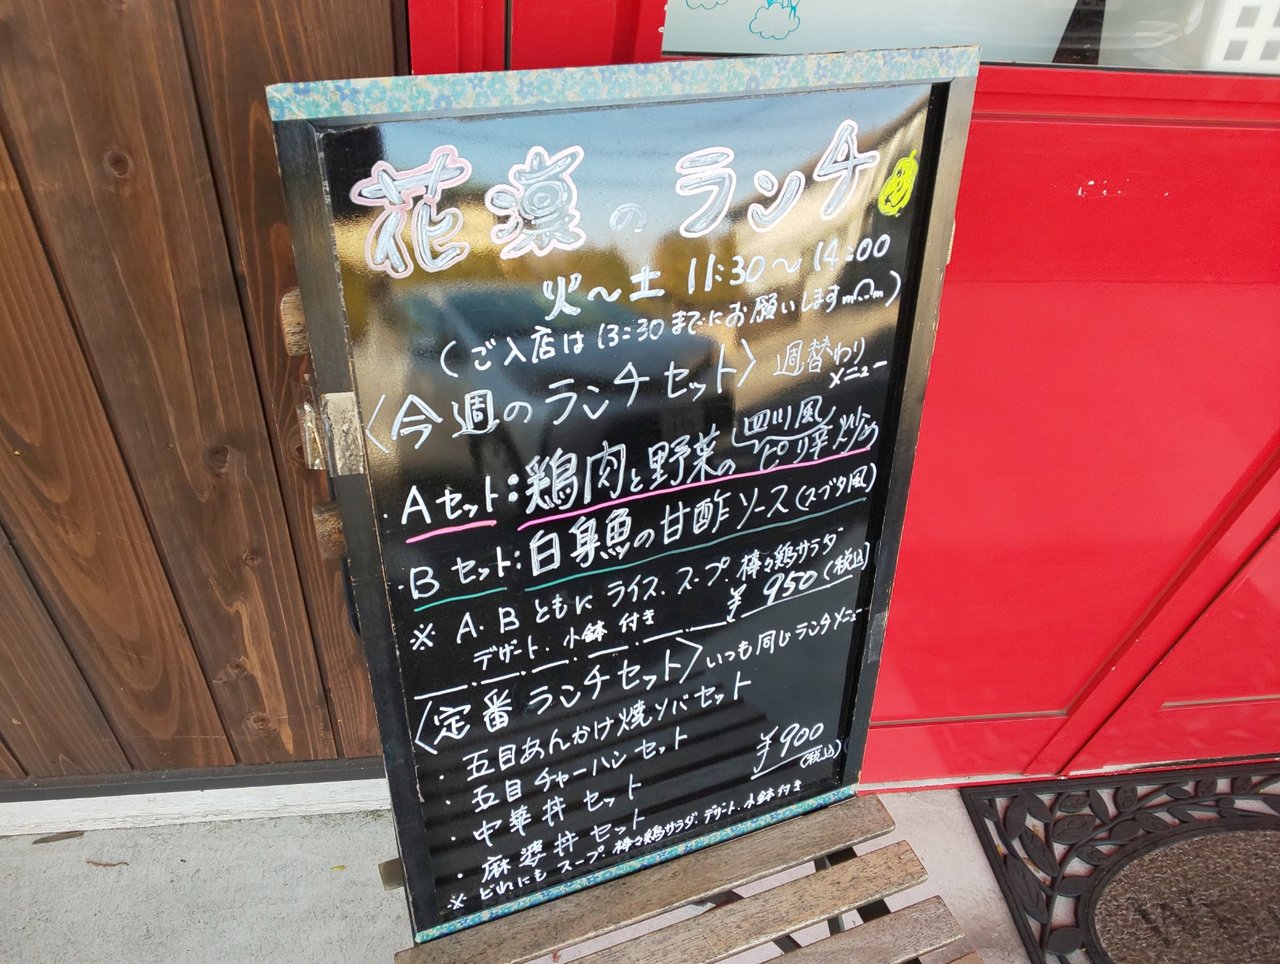 花凛のランチ
火～土 11:30～14:00
(ご入店は13:30までにお願いしますm_ _m)
〈今週のランチセット〉週替わりメニュー
・Aセット:鶏肉と野菜の四川風ピリ辛炒め
・Bセット:白身魚の甘酢ソース(スブタ風)
※A.Bともにライス.スープ.棒々鶏サラダ
デザート.小鉢付き ¥950(税込)
〈定番ランチセット〉いつも同じランチメニュー
・五目あんかけ焼ソバセット
・五目チャーハンセット
・中華丼セット
・麻婆丼セット
¥900(税込)
※どれにもスープ.棒々鶏サラダ.デザート.小鉢付き